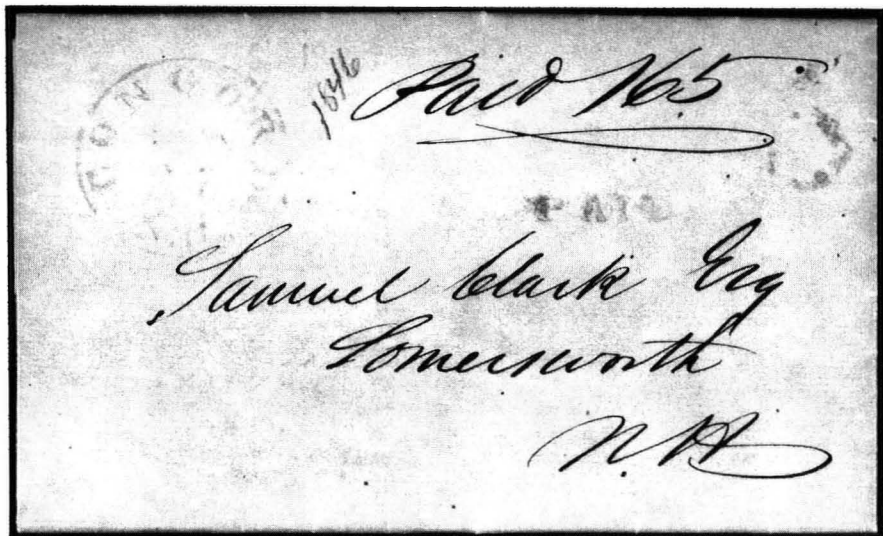 1846
Paid 165
PAID
Samuel Clark Esq
Somersworth
N. H